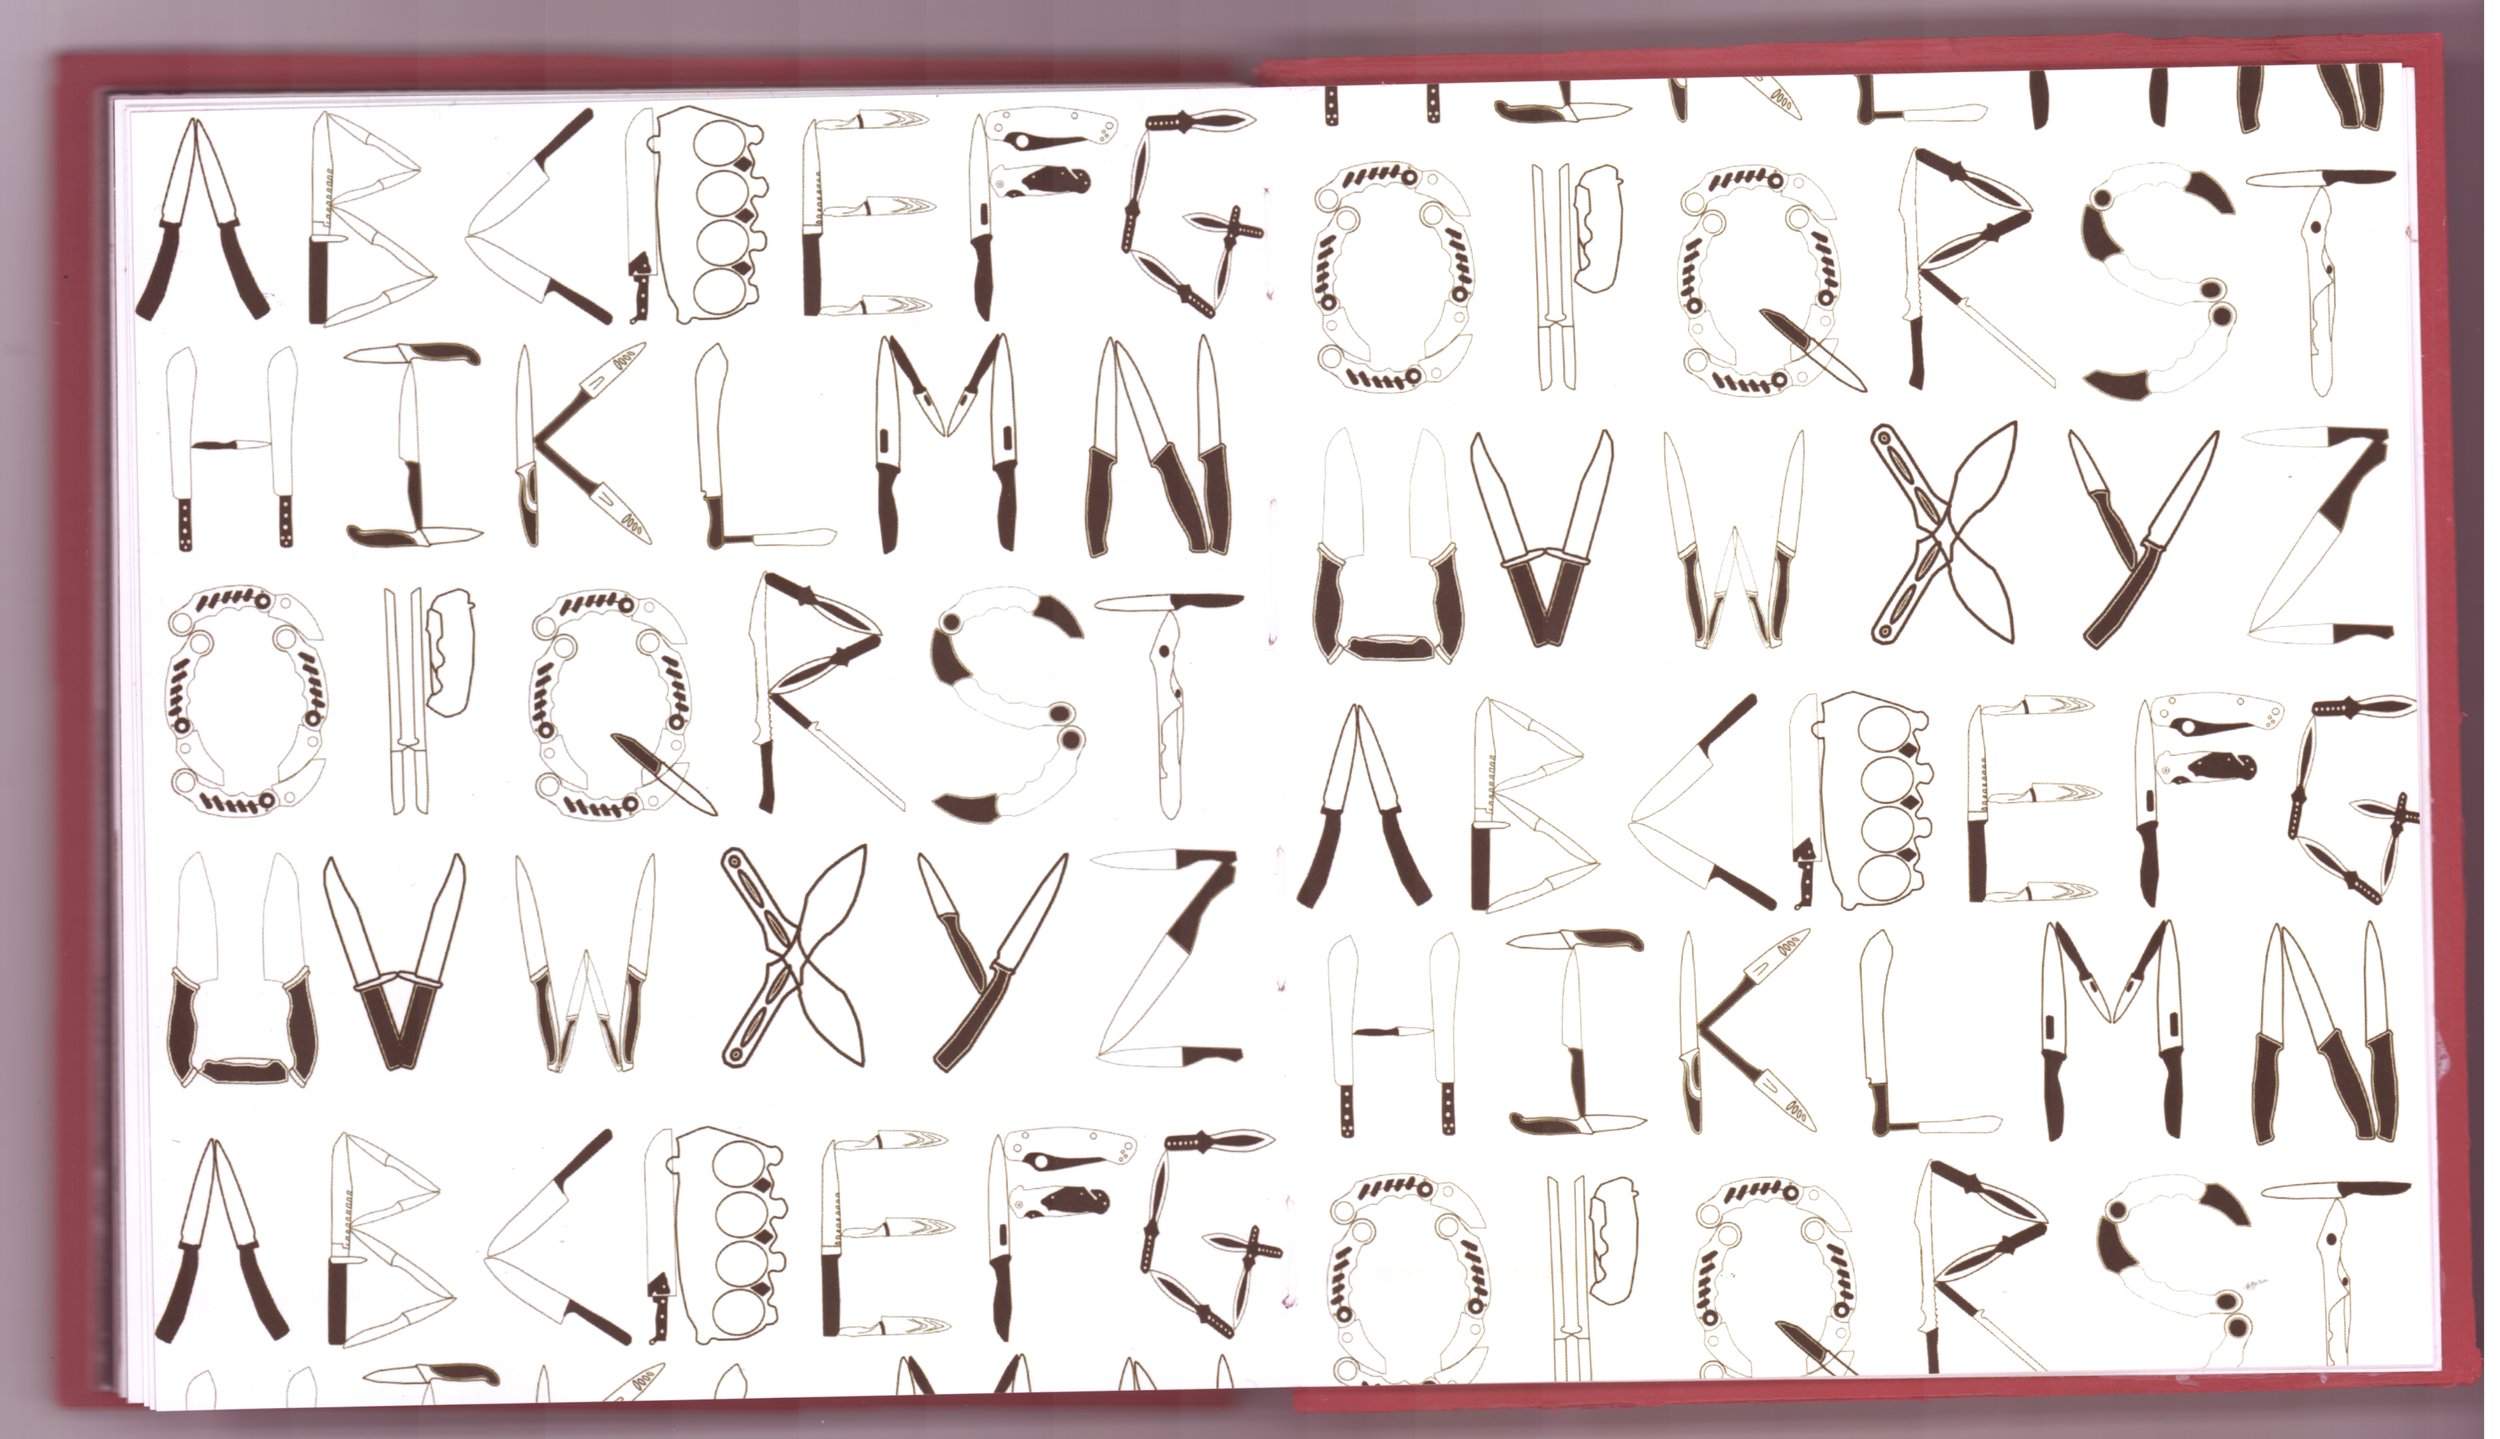 ABCDEFG
HIKLMN
OPQRST
UVWXYZ
ABCDEFG
HIKLMN
HIKLMN
OPQRST
UVWXYZ
ABCDEFG
HIKLMN
OPQRST